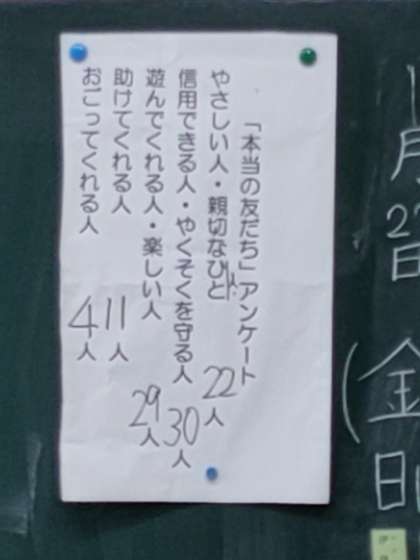 「本当の友だち」アンケート
やさしい人・親切なひと 22人
信用できる人・やくそくを守る人 30人
遊んでくれる人・楽しい人 29人
助けてくれる人 11人
おごってくれる人 4人
月
22日
(金